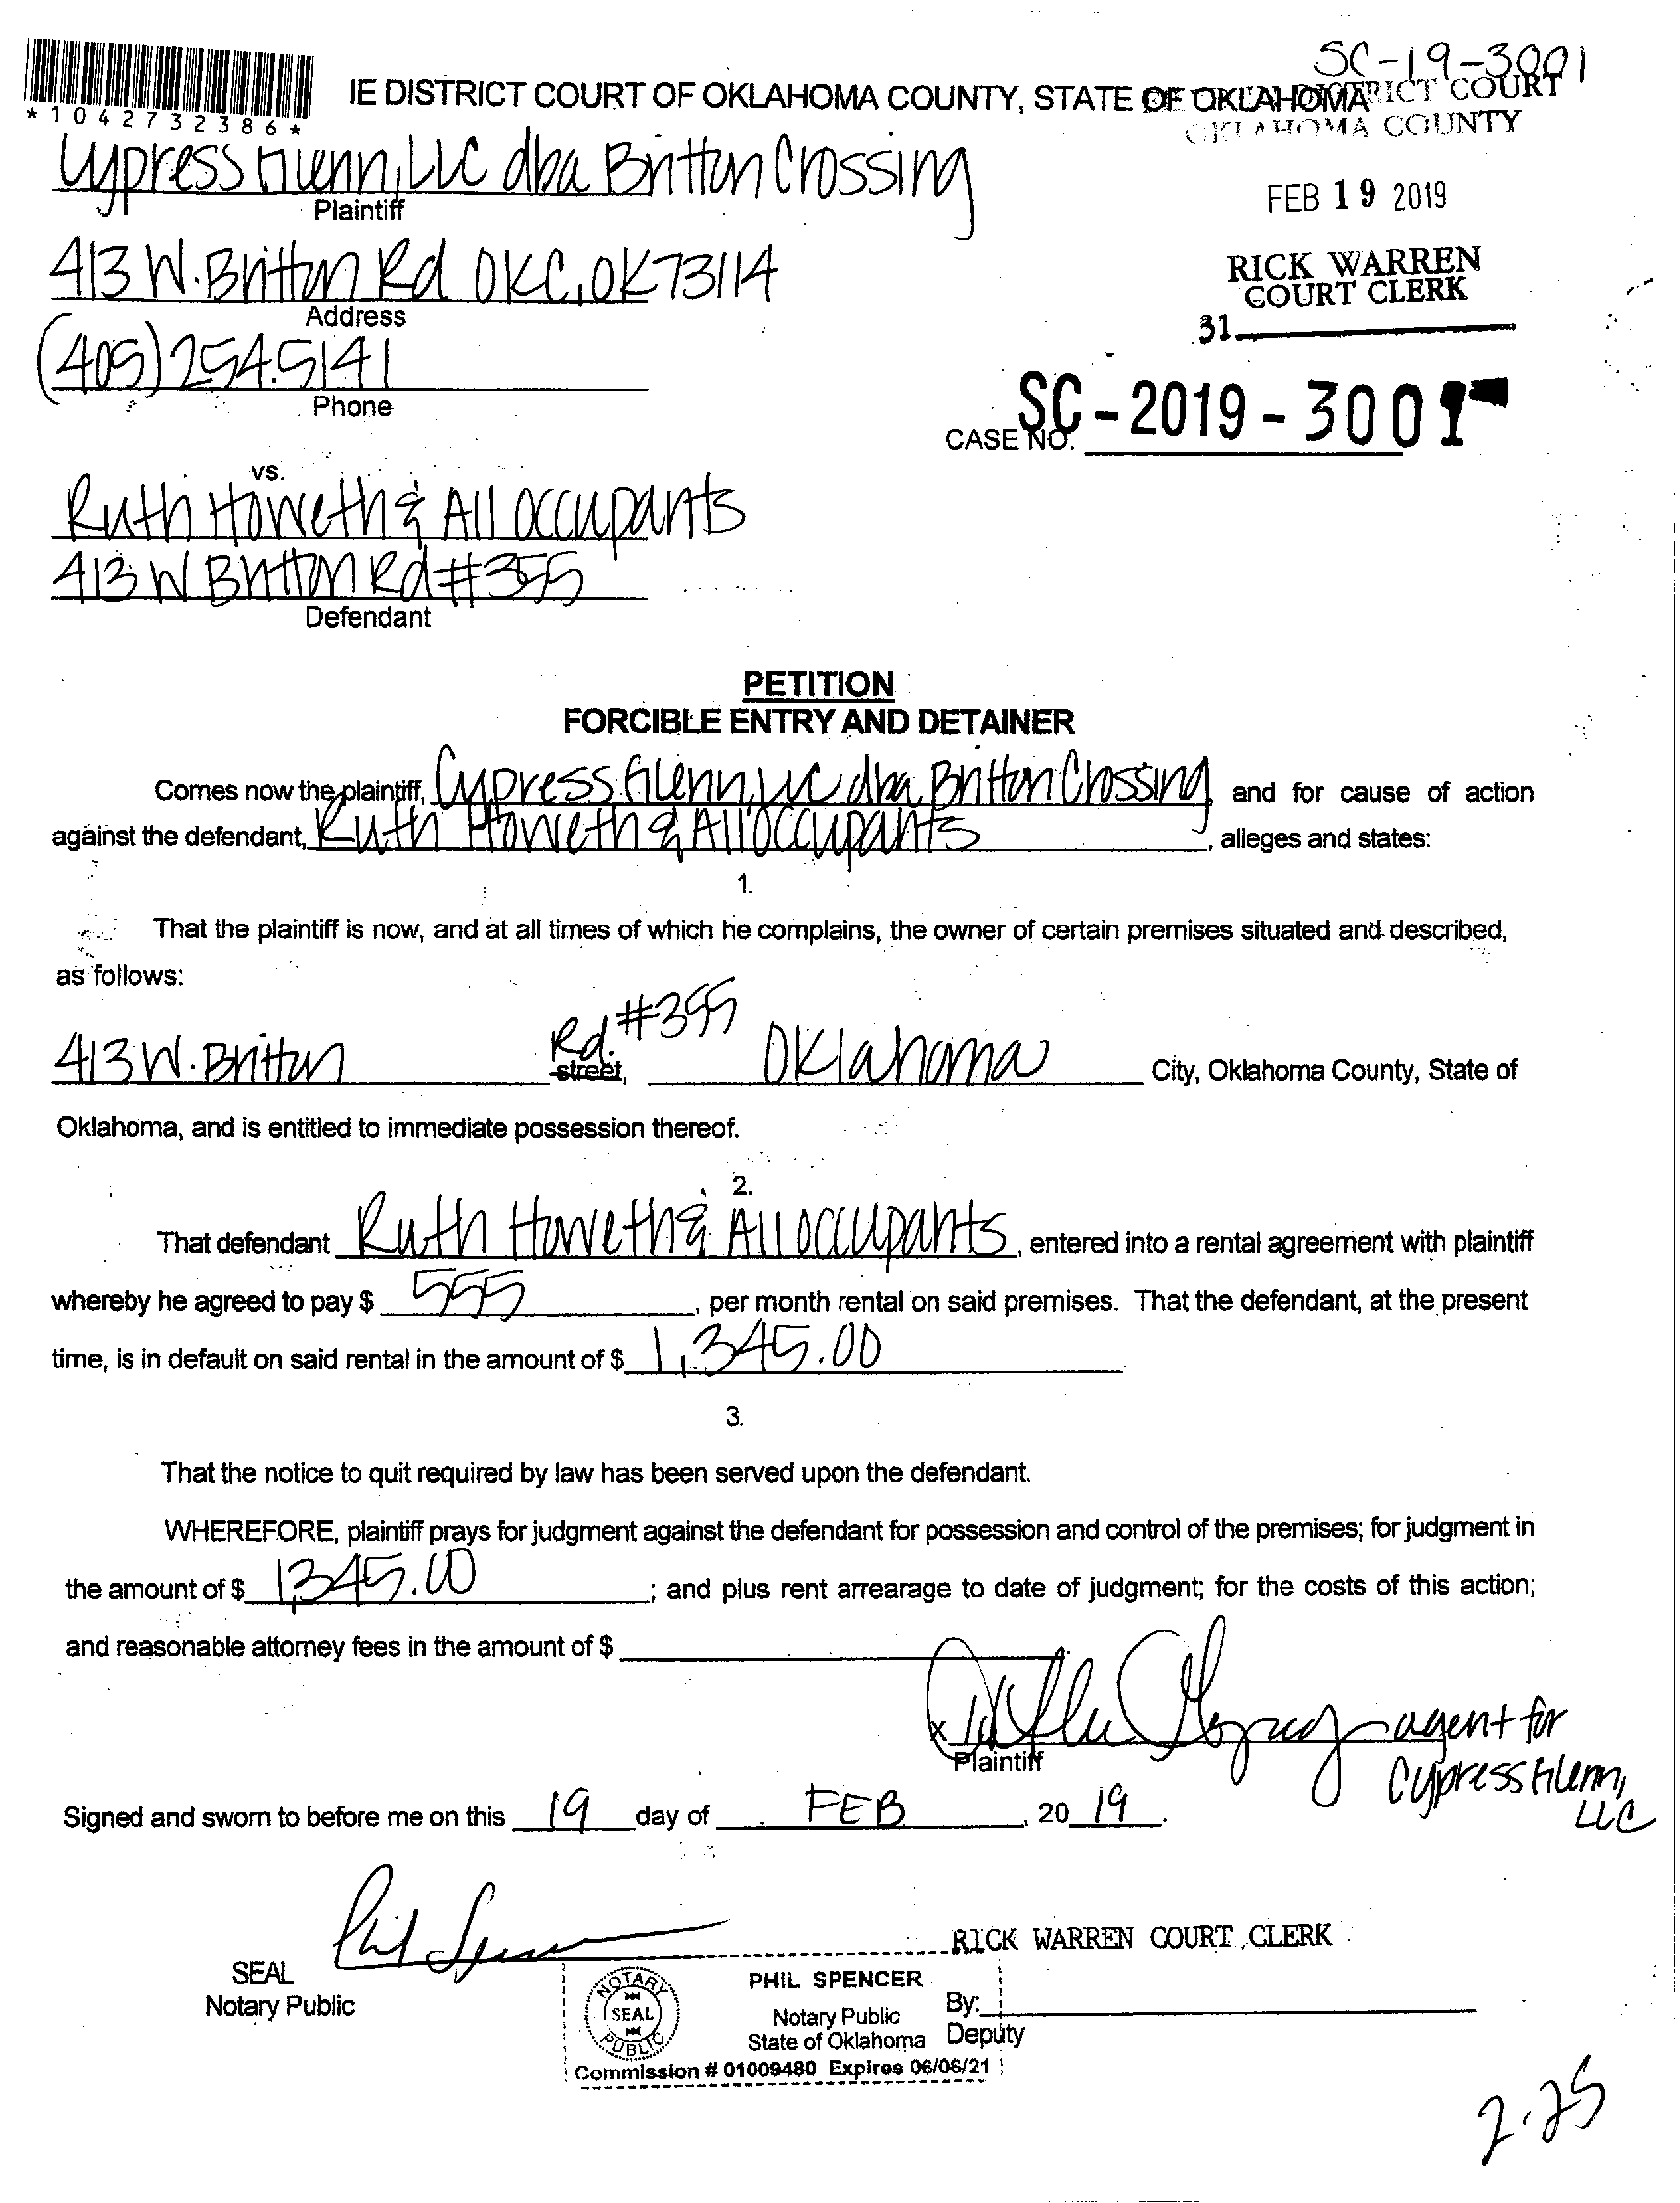 SC-19-3001
IE DISTRICT COURT OF OKLAHOMA COUNTY, STATE OF OKLAHOMA
DISTRICT COURT
OKLAHOMA COUNTY
*1042732386*
Cypress Glenn, LLC dba Britton Crossing
Plaintiff
FEB 19 2019
413 W. Britton Rd OKC, OK 73114
Address
RICK WARREN
COURT CLERK
31
(405) 254.5141
Phone
CASE NO. SC-2019-3001
vs.
Ruth Howeth & All occupants
413 W Britton Rd #355
Defendant
PETITION
FORCIBLE ENTRY AND DETAINER
Comes now the plaintiff, Cypress Glenn, LLC dba Britton Crossing and for cause of action
against the defendant, Ruth Howeth & All occupants, alleges and states:
1.
That the plaintiff is now, and at all times of which he complains, the owner of certain premises situated and described,
as follows:
413 W. Britton Rd. #355 street, Oklahoma City, Oklahoma County, State of
Oklahoma, and is entitled to immediate possession thereof.
2.
That defendant Ruth Howeth & All occupants, entered into a rental agreement with plaintiff
whereby he agreed to pay $ 555, per month rental on said premises. That the defendant, at the present
time, is in default on said rental in the amount of $ 1,345.00.
3.
That the notice to quit required by law has been served upon the defendant.
WHEREFORE, plaintiff prays for judgment against the defendant for possession and control of the premises; for judgment in
the amount of $ 1,345.00; and plus rent arrearage to date of judgment; for the costs of this action;
and reasonable attorney fees in the amount of $
x agent for
Plaintiff Cypress Glenn,
LLC
Signed and sworn to before me on this 19 day of FEB, 20 19.
Phil Spencer
RICK WARREN COURT CLERK
SEAL
Notary Public
NOTARY PUBLIC SEAL
PHIL SPENCER
Notary Public
State of Oklahoma
Commission # 01009480 Expires 06/06/21
By:
Deputy
2-25